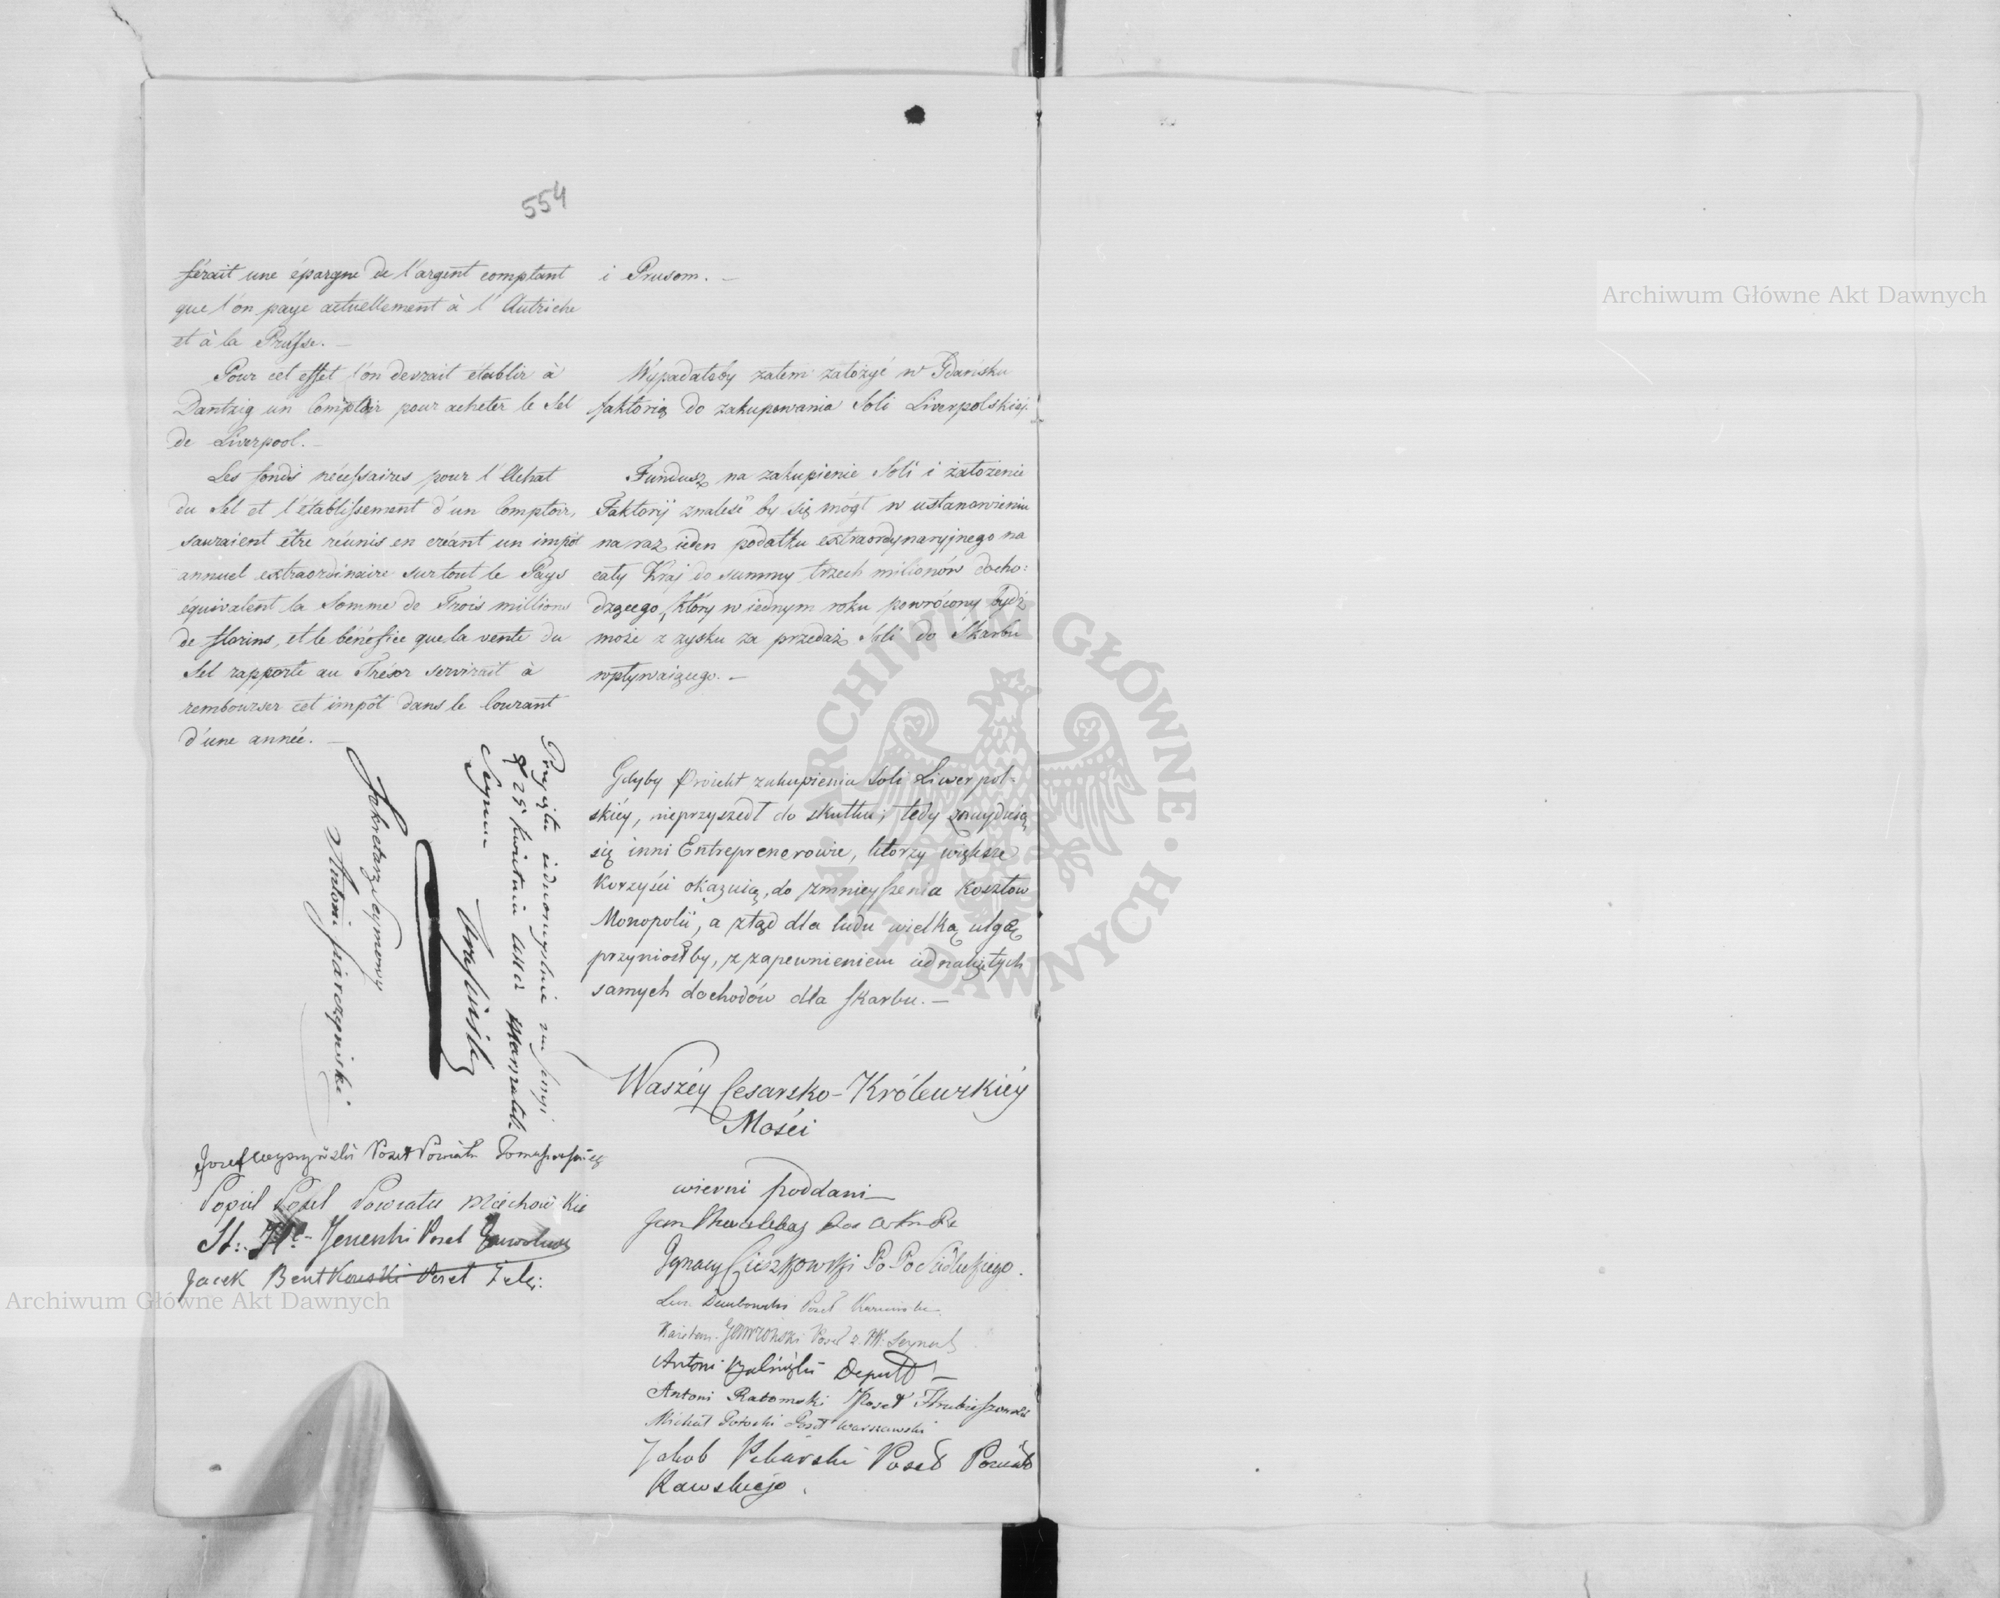 554
ferait une épargne de l'argent comptant
que l'on paye actuellement à l'Autriche
et à la Prusse. —
Pour cet effet l'on devrait établir à
Dantzig un Comptoir pour acheter le Sel
de Liverpool. —
Les fonds nécessaires pour l'Achat
du Sel et l'établissement d'un Comptoir,
sauraient être réunis en créant un impôt
annuel extraordinaire sur tout le Pays
équivalent la Somme de Trois millions
de florins, et le bénéfice que la vente du
Sel rapporte au Trésor servirait à
rembourser cet impôt dans le Courant
d'une année. —
i Prusom. —
Wypadałoby zatem założyć w Gdańsku
faktorią do zakupowania Soli Liverpolskiej.
Fundusz na zakupienie Soli i założenie
Faktorij znaleść by się mógł w ustanowieniu
na raz ieden podatku extraordynaryjnego na
cały Kraj do summy trzech milionów docho:
dzącego, który w iednym roku powrócony bydź
może z zysku za przedaż Soli do Skarbu
wpływaiącego. —
Gdyby Proiekt zakupienia Soli Liwerpol-
skiéy, nieprzyszedł do skutku, tedy znaydują
się inni Entreprenerowie, którzy większe
Korzyści okazuią, do zmnieyszenia Kosztow
Monopolii, a ztąd dla ludu wielką ulgę
przyniosłby, z zapewnieniem iednakiętych
samych dochodów dla Skarbu. —
Przyięta iednomyślnie na Sessyi
d 25 Kwietnia Marszałek
Seymu
Krasiński
Sekretarz Seymowy
Antoni
Waszéy Cesarsko-Królewskiéy
Mości
wierni poddani —
Jan
Ignacy Cieszkowski Po Po Siedleckiego.
Dembowski Poseł
Jaworski Poseł
Antoni Deputt —
Antoni Radomski Poseł Hrubieszowski
Michał Potocki Poseł Warszawski
Jakob Pekarski Poseł Powiatu
Rawskiego.
Jozef Wyszyński Poseł Powiatu Tomaszowskiego
Popiel Poseł Powiatu Miechowskie
Poseł
Jacek Bentkowski Poseł
Archiwum Główne Akt Dawnych
Archiwum Główne Akt Dawnych
ARCHIWUM GŁÓWNE · AKT DAWNYCH ·